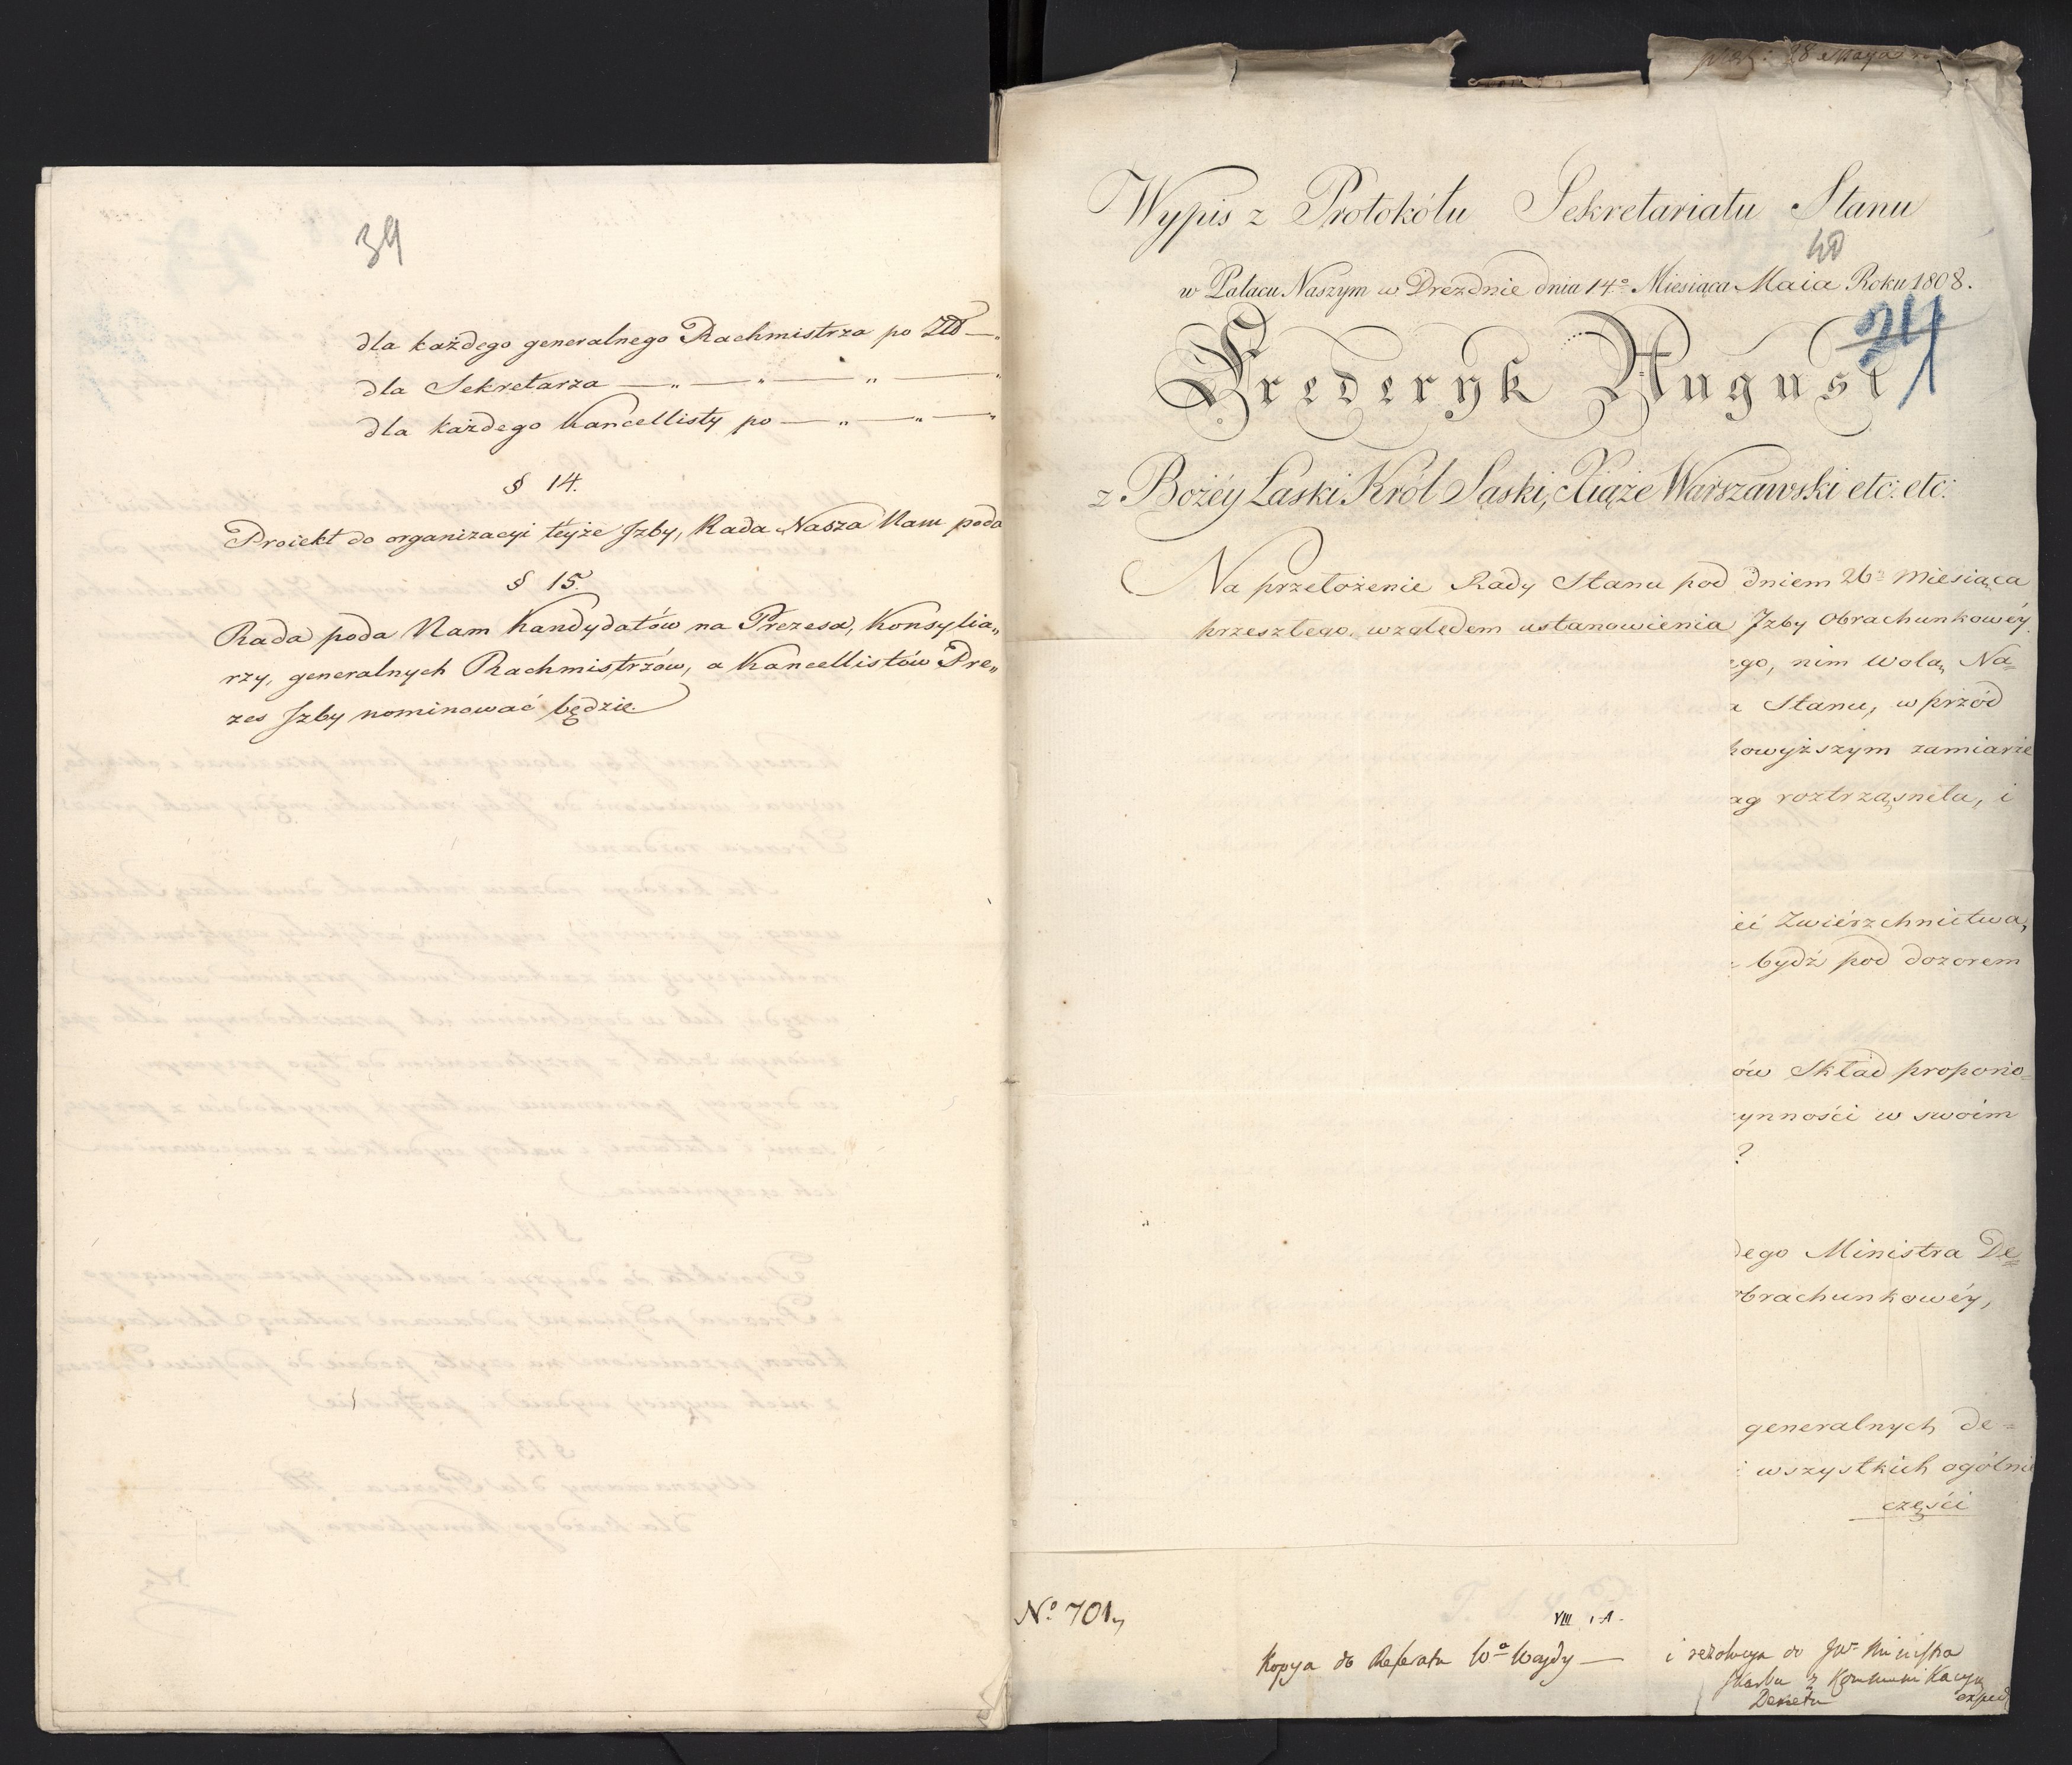 39
dla każdego generalnego Rachmistrza po Złł — "
dla Sekretarza — " — " — " — "
dla każdego Kancellisty po — " — " — "
§ 14.
Proiekt do organizacyi teyże Jzby, Rada Nasza Nam poda
§ 15.
Rada poda Nam Kandydatów na Prezesa, Konsylia„
rzy, generalnych Rachmistrzów, a Kancellistów Pre„
zes Jzby nominować będzie.
28 Maja
Wypis z Protokółu Sekretariatu Stanu
40
w Pałacu Naszym w Dreźdnie dnia 14º Miesiąca Maia Roku 1808.
24
Frederyk August
z Bożéy Łaski Król Saski, Xiąże Warszawski etc: etc:
Na przełożenie Rady Stanu pod dniem 26º Miesiąca
przeszłego, względem ustanowienia Jzby Obrachunkowéy
ego, nim Wolą Na=
a Stanu, w przód
powyższym zamiarze
ag roztrząsneła, i
ei Zwiérzchnictwa,
bydź pod dozorem
ów Skład propono=
zynności w swoim
?
dego Ministra De=
obrachunkowéy,
generalnych de=
i wszystkich ogólnie
części
Nº 701,
VIII
Kopya do Referatu Wº Wajdy — i rezolucya do JWº Ministra
Skarbu z Kommunikacyą
Dekretu exped